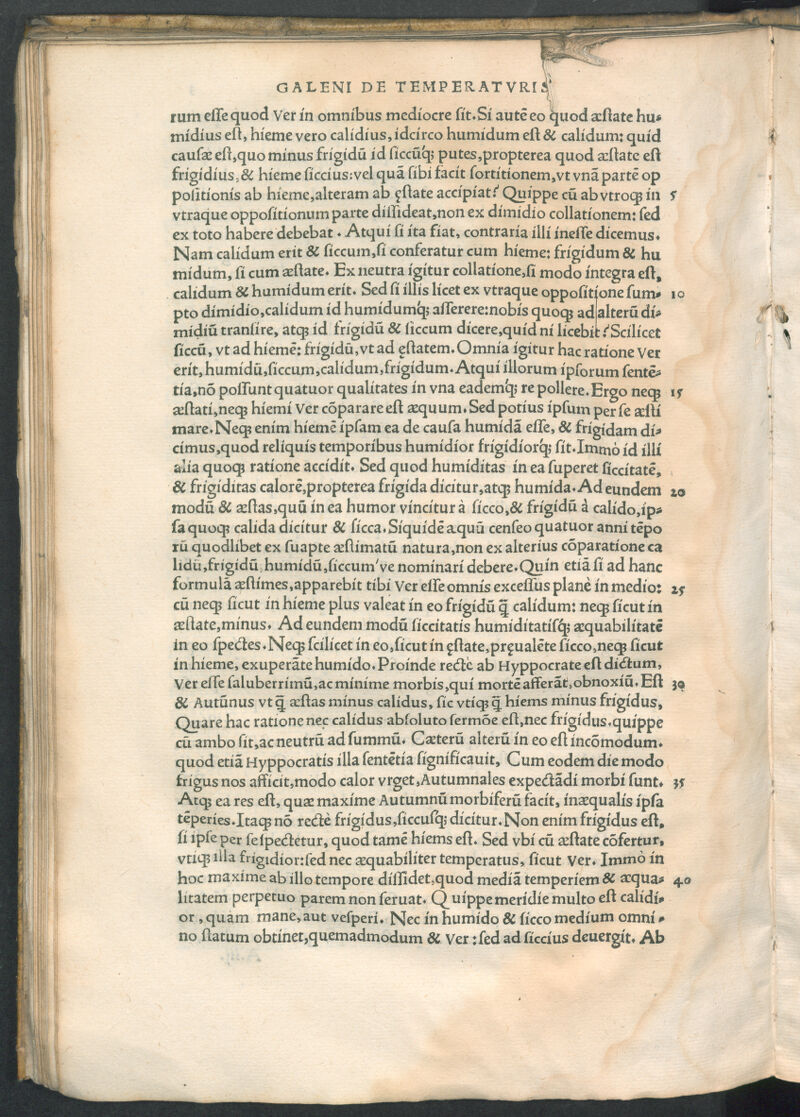 GALENI DE TEMPERATVRIS
rum eſſe quod Ver in omnibus mediocre ſit. Si autē eo quod æſtate hu⸗
midius eſt, hieme vero calidius, idcirco humidum eſt & calidum: quid
cauſæ eſt, quo minus frigidū id ſiccūq; putes, propterea quod æſtate eſt
frigidius, & hieme ſiccius: vel quā ſibi facit ſortitionem, vt vnā partē op
poſitionis ab hieme, alteram ab ęſtate accipiat? Quippe cū ab vtroq; in 5
vtraque oppoſitionum parte diſſideat, non ex dimidio collationem: ſed
ex toto habere debebat. Atqui ſi ita fiat, contraria illi ineſſe dicemus.
Nam calidum erit & ſiccum, ſi conferatur cum hieme: frigidum & hu
midum, ſi cum æſtate. Ex neutra igitur collatione, ſi modo integra eſt,
calidum & humidum erit. Sed ſi illis licet ex vtraque oppoſitione ſum⸗ 10
pto dimidio, calidum id humidumq́; aſſerere: nobis quoq; ad alterū di⸗
midiū tranſire, atq; id frigidū & ſiccum dicere, quid ni licebit? Scilicet
ſiccū, vt ad hiemē: frigidū, vt ad ęſtatem. Omnia igitur hac ratione Ver
erit, humidū, ſiccum, calidum, frigidum. Atqui illorum ipſorum ſentē⸗
tia, nō poſſunt quatuor qualitates in vna eademq́; re pollere. Ergo neq; 15
æſtati, neq; hiemi Ver cōparare eſt æquum. Sed potius ipſum per ſe æſti
mare. Neq; enim hiemē ipſam ea de cauſa humidā eſſe, & frigidam di⸗
cimus, quod reliquis temporibus humidior frigidiorq́; ſit. Immo id illi
alia quoq; ratione accidit. Sed quod humiditas in ea ſuperet ſiccitatē,
& frigiditas calorē, propterea frigida dicitur, atq; humida. Ad eundem 20
modū & æſtas, quū in ea humor vincitur à ſicco, & frigidū à calido, ip⸗
ſa quoq; calida dicitur & ſicca. Siquidē æquū cenſeo quatuor anni tēpo
rū quodlibet ex ſuapte æſtimatū natura, non ex alterius cōparatione ca
lidū, frigidū humidū, ſiccum've nominari debere. Quin etiā ſi ad hanc
formulā æſtimes, apparebit tibi Ver eſſe omnis exceſſus planè in medio: 25
cū neq; ſicut in hieme plus valeat in eo frigidū q̄ calidum: neq; ſicut in
æſtate, minus. Ad eundem modū ſiccitatis humiditatiſq́; æquabilitatē
in eo ſpectes. Neq; ſcilicet in eo, ſicut in ęſtate, pręualēte ſicco, neq; ſicut
in hieme, exuperāte humido. Proinde rectè ab Hyppocrate eſt dictum,
Ver eſſe ſaluberrimū, ac minime morbis, qui mortē afferāt, obnoxiū. Eſt 30
& Autūnus vt q̄ æſtas minus calidus, ſic vtiq; q̄ hiems minus frigidus,
Quare hac ratione nec calidus abſoluto ſermōe eſt, nec frigidus. quippe
cū ambo ſit, ac neutrū ad ſummū. Cæterū alterū in eo eſt incōmodum.
quod etiā Hyppocratis illa ſentētia ſignificauit, Cum eodem die modo
frigus nos afficit, modo calor vrget, Autumnales expectādi morbi ſunt. 35
Atq; ea res eſt, quæ maxime Autumnū morbiferū facit, inæqualis ipſa
tēperies. Itaq; nō rectè frigidus, ſiccuſq́; dicitur. Non enim frigidus eſt,
ſi ipſe per ſe ſpectetur, quod tamē hiems eſt. Sed vbi cū æſtate cōfertur,
vtiq; illa frigidior: ſed nec æquabiliter temperatus, ſicut Ver. Immò in
hoc maxime ab illo tempore diſſidet, quod mediā temperiem & æqua⸗ 40
litatem perpetuo parem non ſeruat. Quippe meridie multo eſt calidi⸗
or, quàm mane, aut veſperi. Nec in humido & ſicco medium omni⸗
no ſtatum obtinet, quemadmodum & Ver: ſed ad ſiccius deuergit. Ab